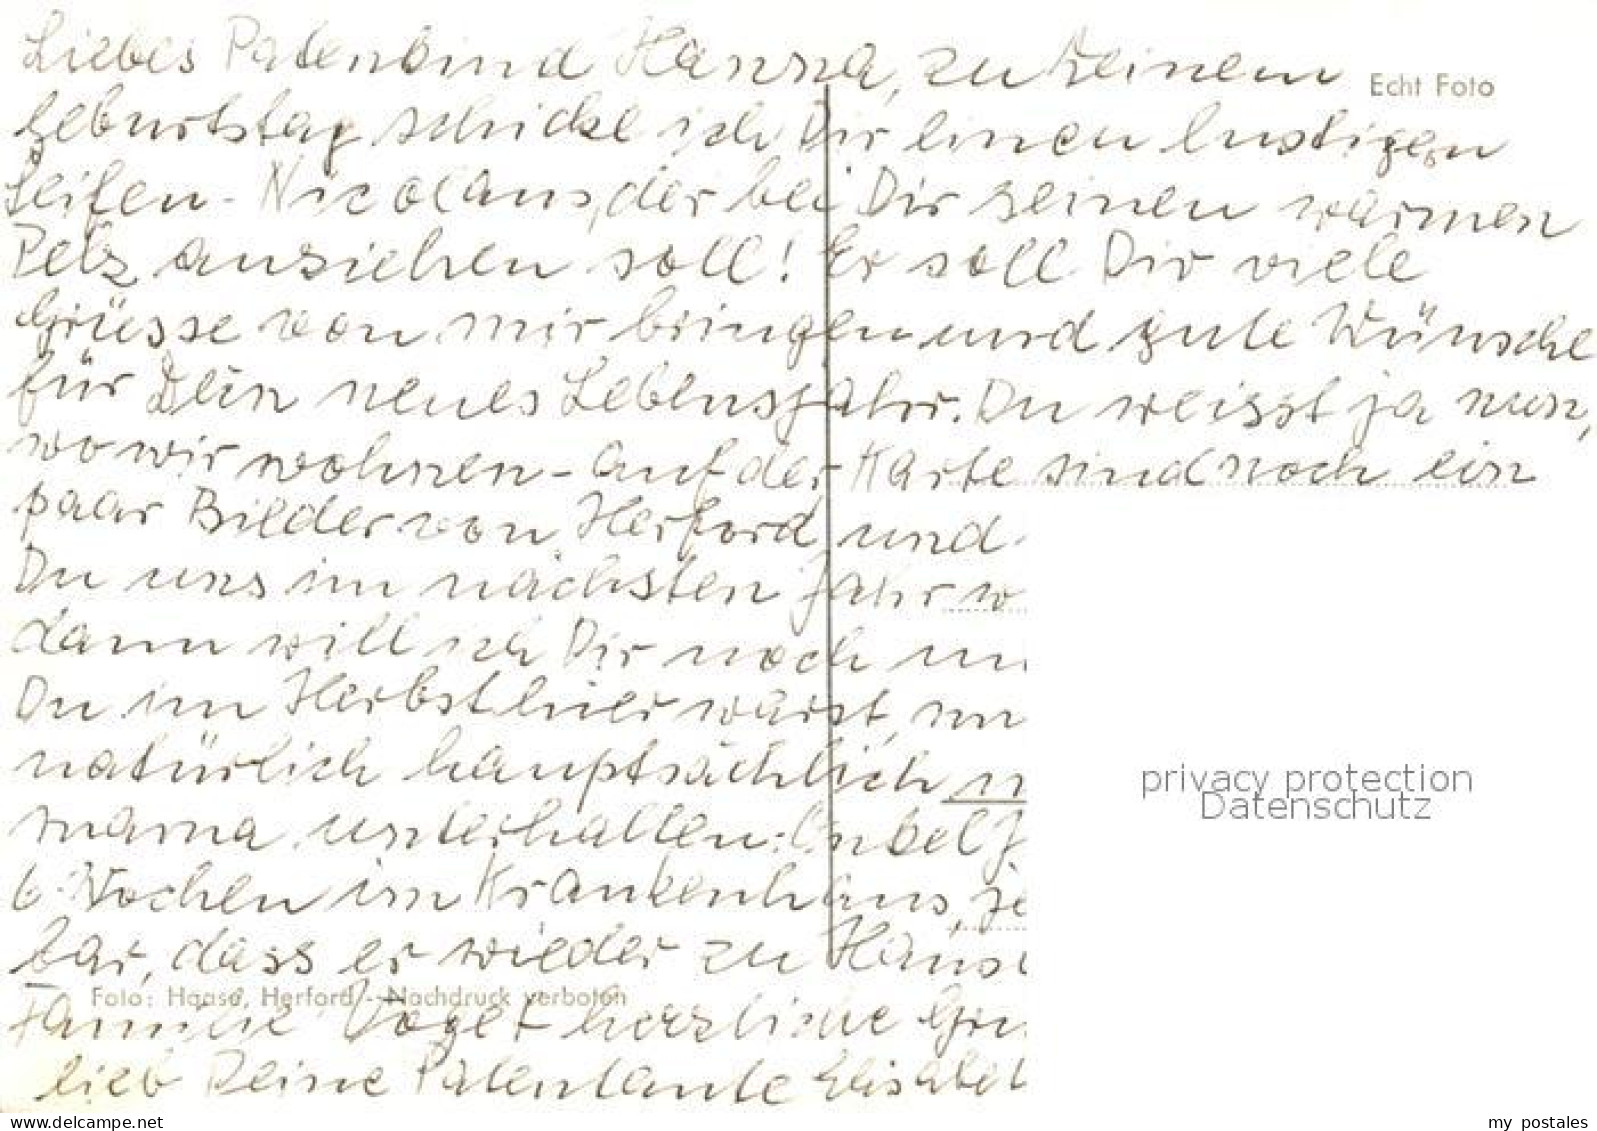 Liebes Patenkind Hanna, zu Deinem
Echt Foto
Geburtstag schicke ich Dir einen lustigen
Seifen-Nicolaus, der bei Dir seinen warmen
Pelz ausziehen soll! Er soll Dir viele
Grüsse von mir bringen und gute Wünsche
für Dein neues Lebensjahr. Du weisst ja nun,
wo wir wohnen - auf der Karte sind noch ein
paar Bilder von Herford und
Du uns im nächsten Jahr w
dann will ich Dir noch
Du im Herbst hier warst,
natürlich hauptsächlich
mama unterhalten. Onkel J
6 Wochen im Krankenhaus, je
bar, dass er wieder zu Haus
Foto: Haase, Herford - Nachdruck verboten
Familie Vogel herzliche Grü
lieb Deine Patentante Elisabet
privacy protection
Datenschutz
delcampe.net
my_postales